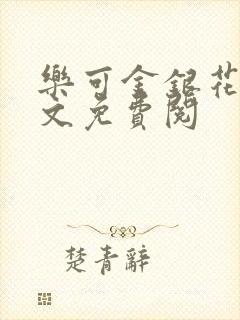 樂可金銀花
文免費閱
楚青辭